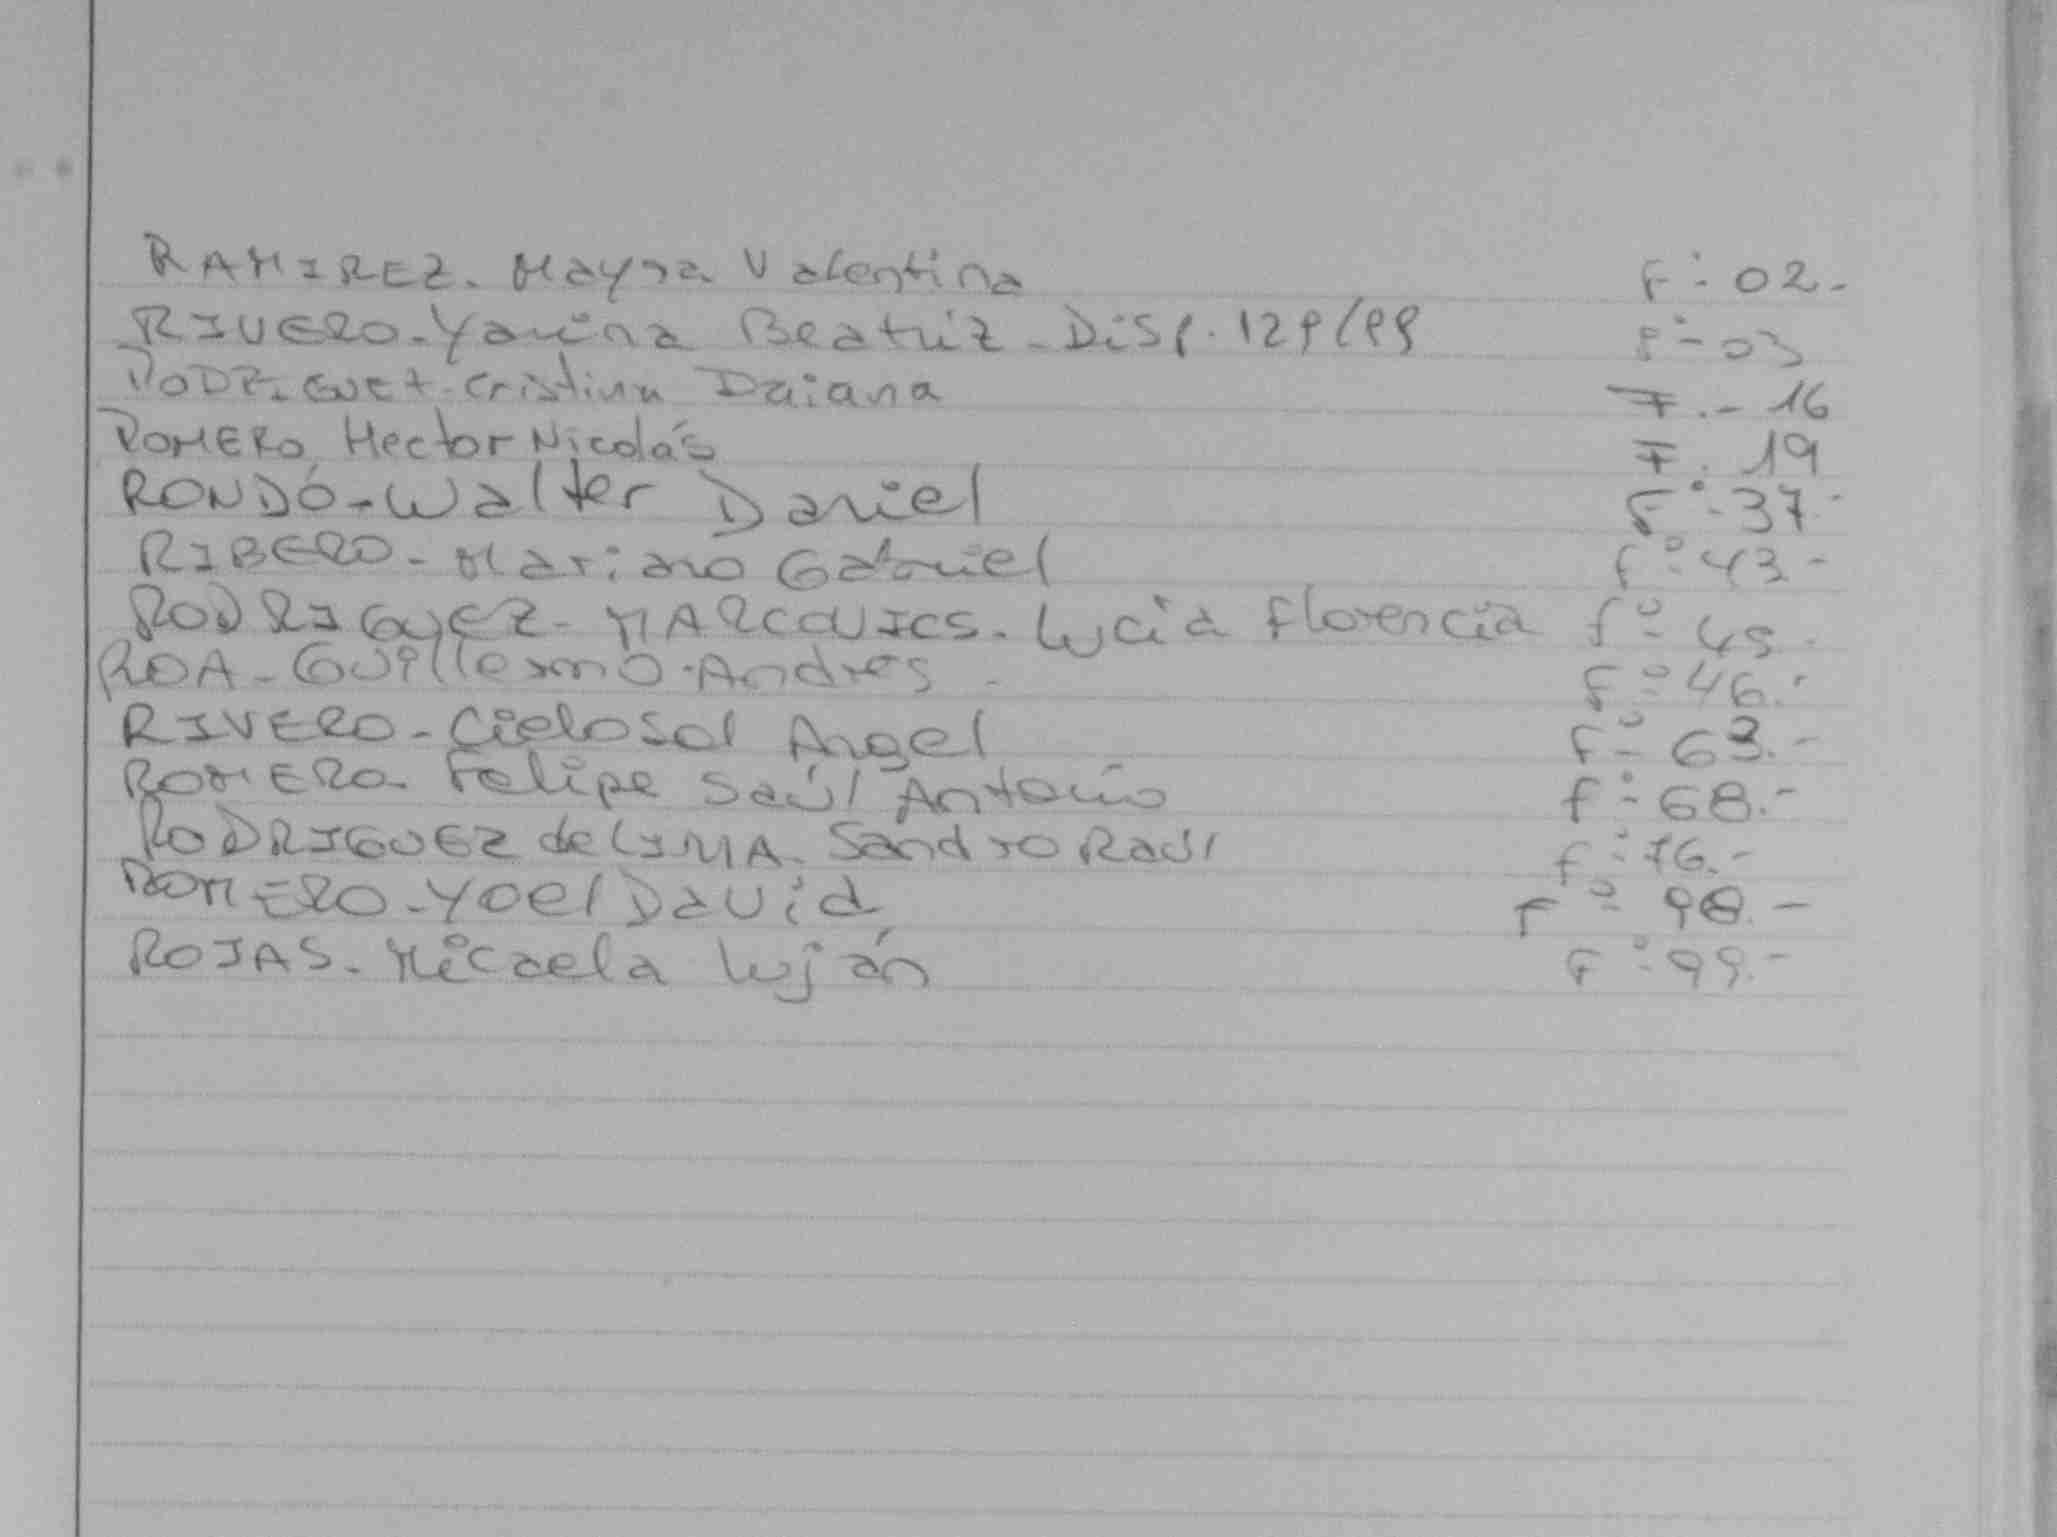 RAMIREZ. Mayra Valentina Fº 02.-
RIVERO-Yanina Beatriz - Disp. 129/99 Fº- 03
RODRIGUEZ. Cristina Daiana F.- 16
ROMERO, Hector Nicolás F. 19
RONDÓ-Walter Daniel Fº 37.-
RIBERO- Mariano Gabriel fº 43.-
RODRIGUEZ- MARCOVICS. Lucía Florencia fº 45.
ROA-Guillermo-Andrés. Fº 46.-
RIVERO-Cielo Sol Angel Fº 63.-
ROMERO- Felipe Saúl Antonio fº 68.-
RODRIGUEZ de LIMA. Sandro Raúl fº 76.-
ROMERO-Yoel David Fº 98.-
ROJAS. Micaela Luján Fº 99.-